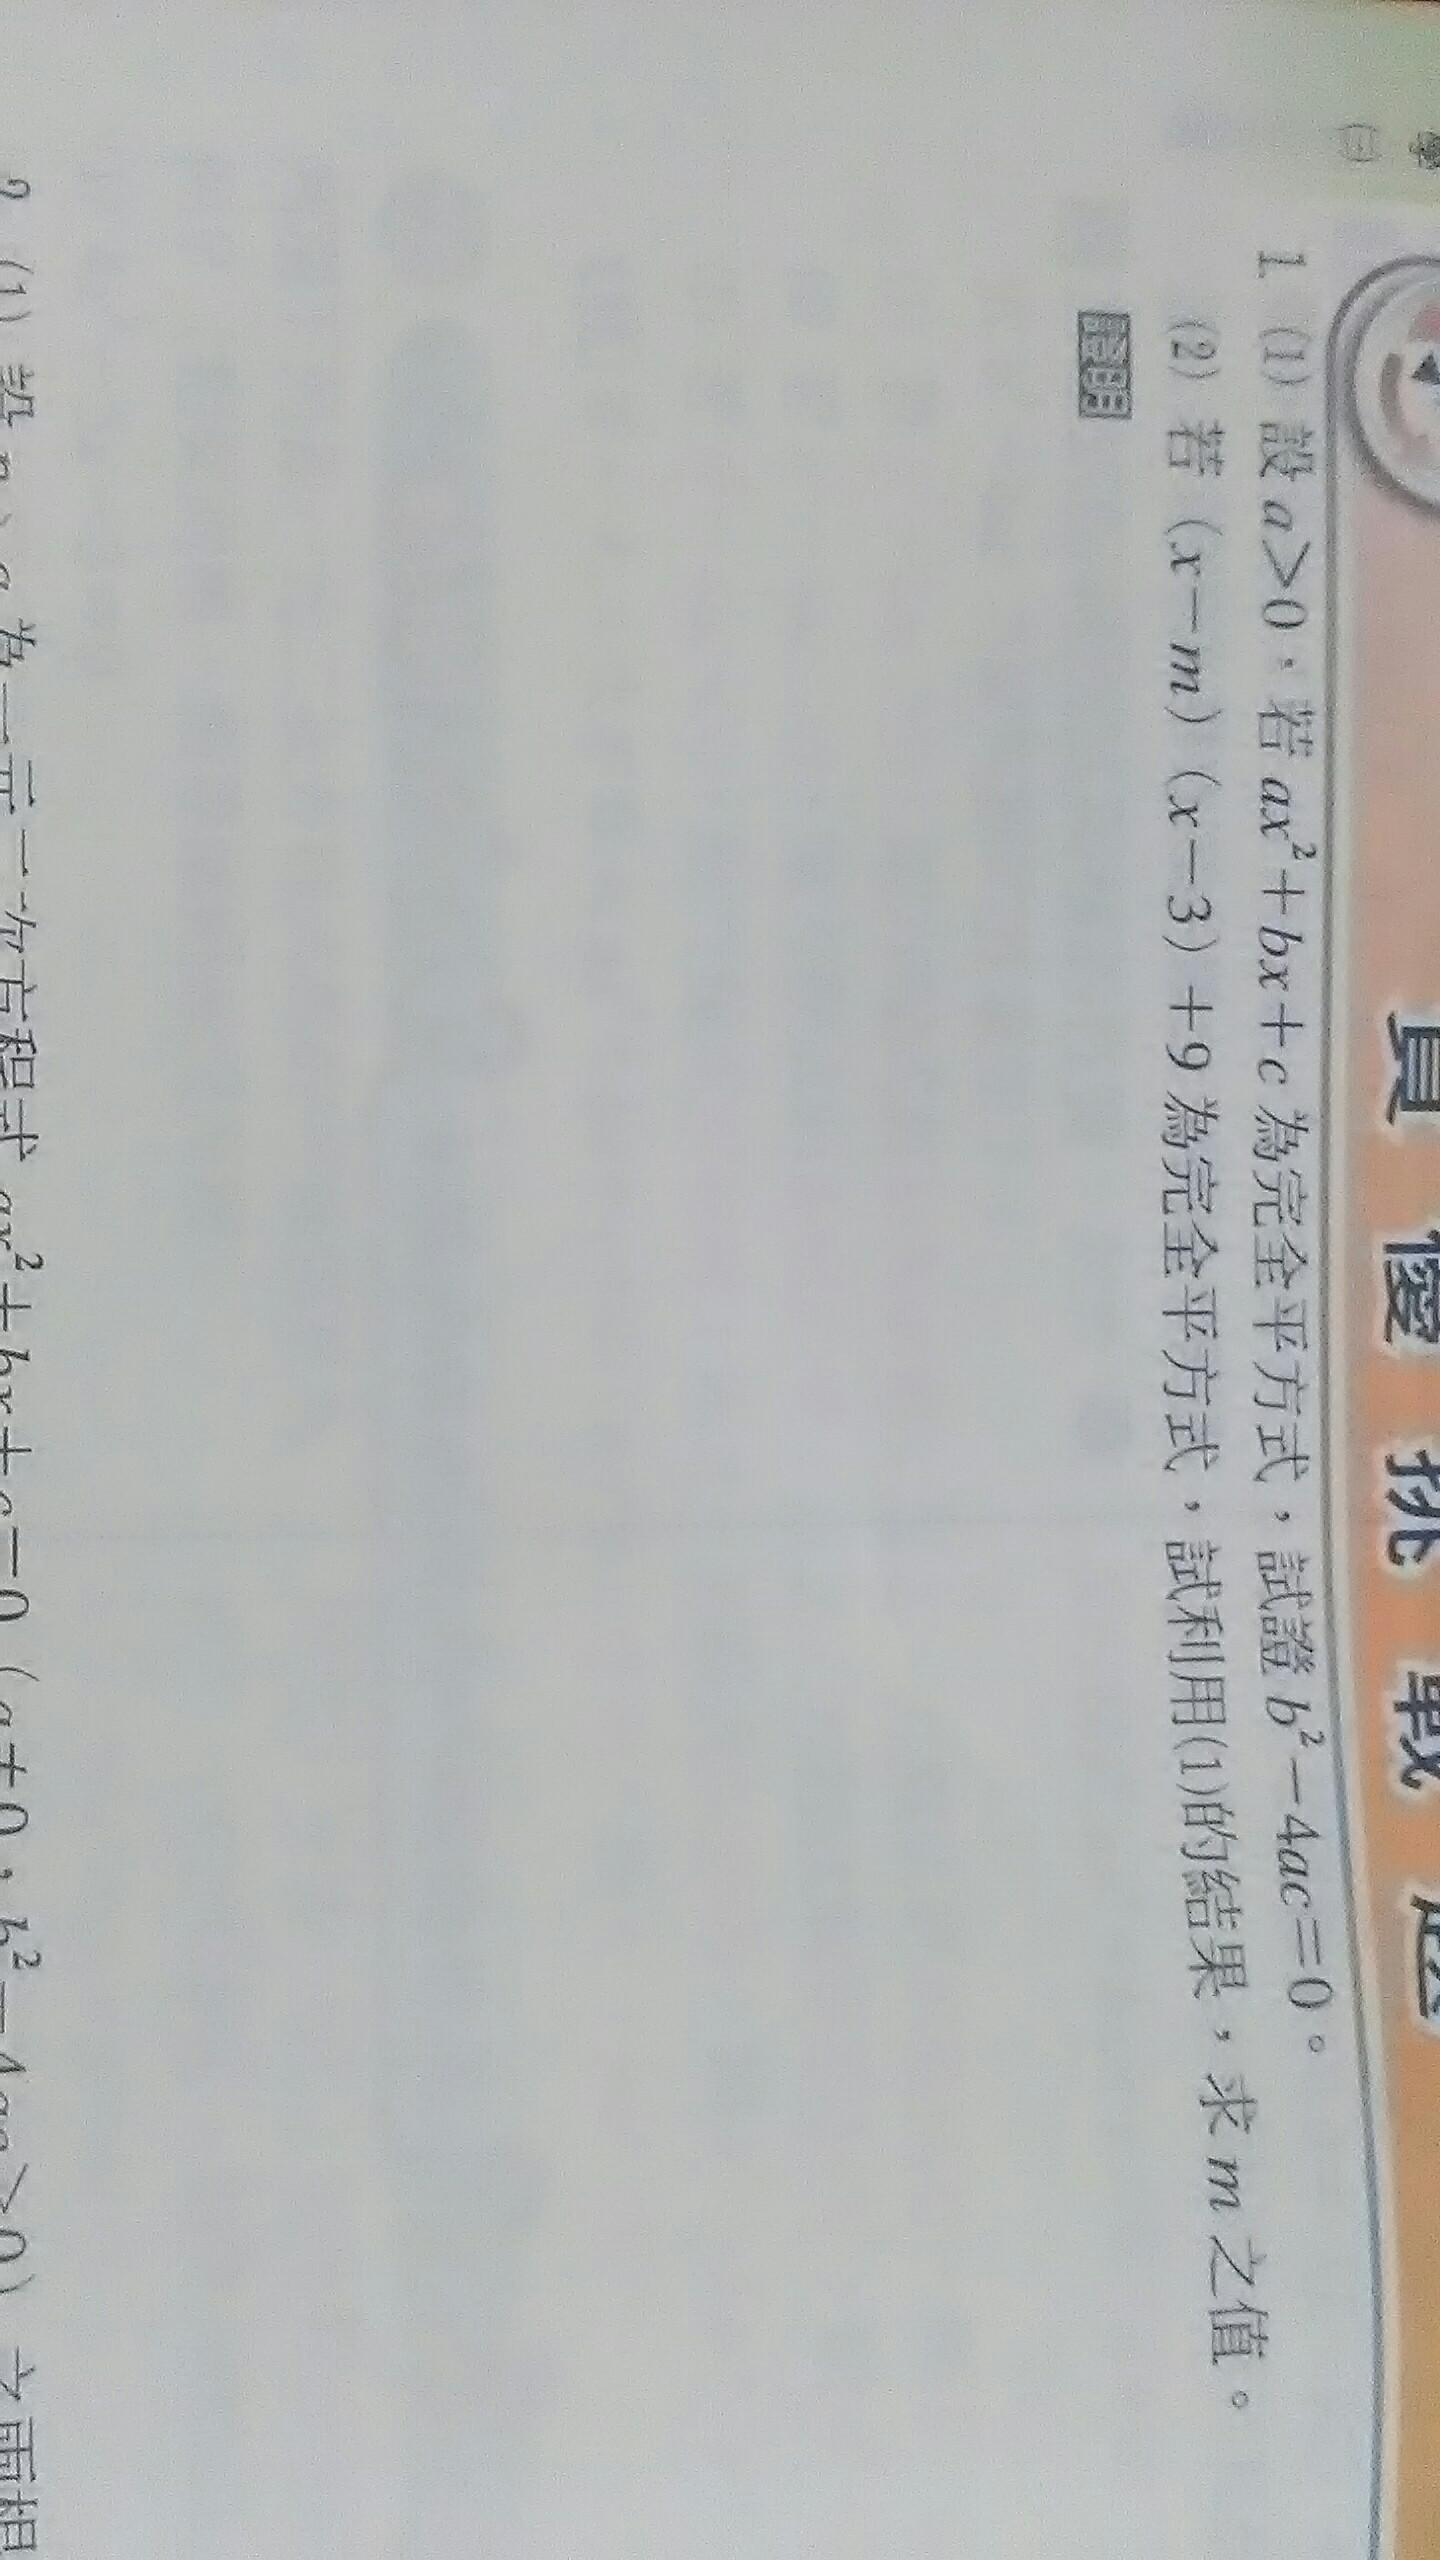 資優挑戰
1. (1) 設 a>0,若 ax²+bx+c 為完全平方式,試證 b²-4ac=0。
(2) 若 (x-m)(x-3)+9 為完全平方式,試利用(1)的結果,求 m 之值。
證明
2. (1) 設 為一元二次方程式 ax²+bx+c=0 (a≠0,b²-4ac≥0) 之兩根